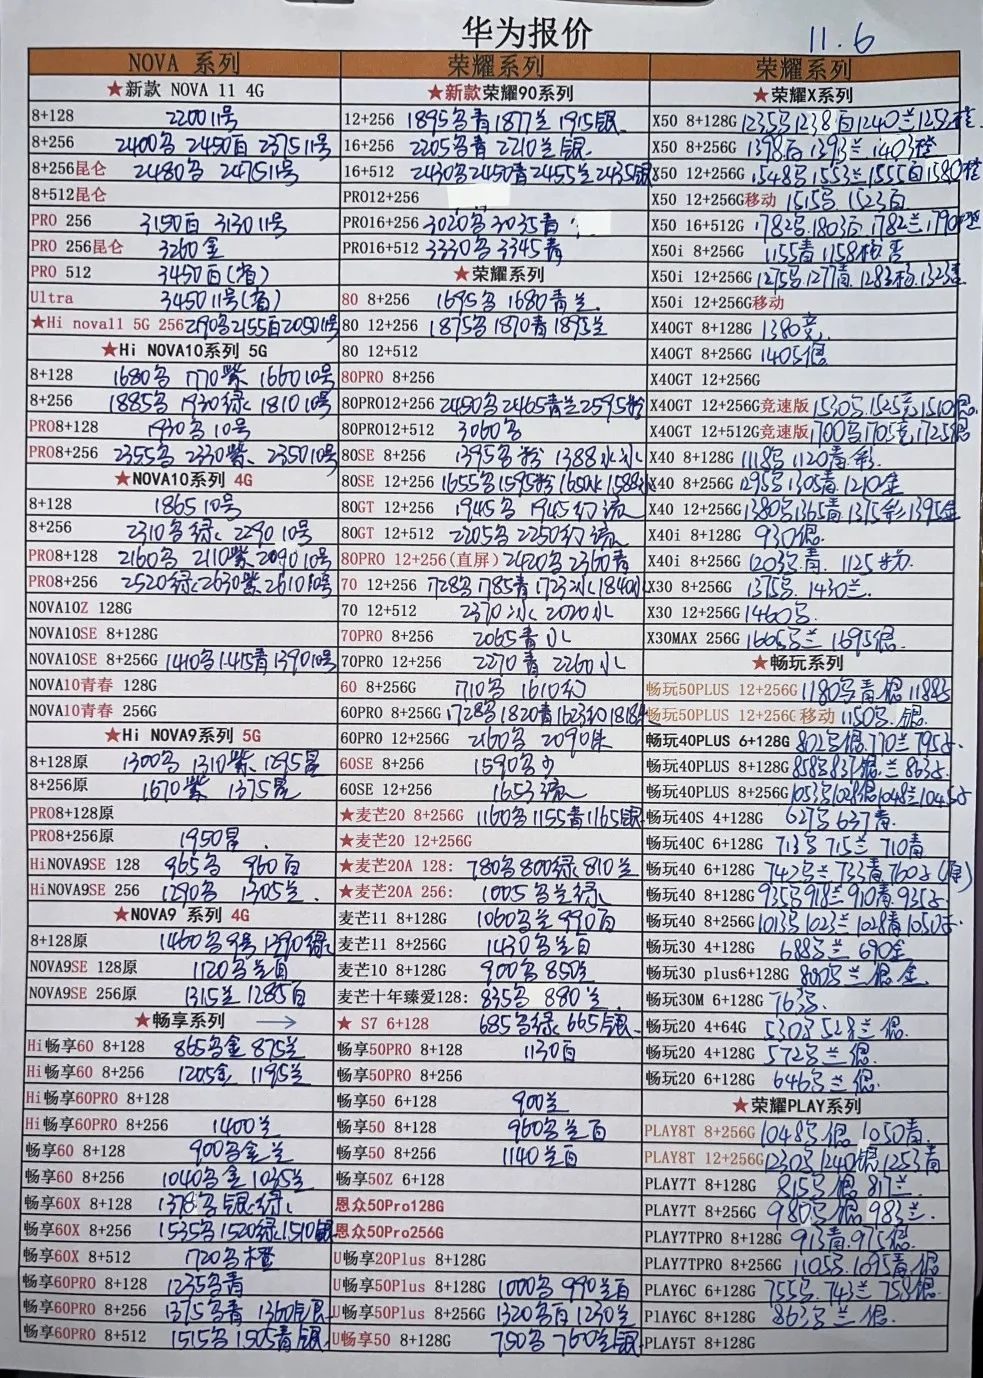 华为报价
11.6
NOVA 系列
★新款 NOVA 11 4G
8+128 2200 11号
8+256 2400多 2450白 2375 11号
8+256昆仑 2480多 2475 11号
8+512昆仑
PRO 256 3150白 3130 11号
PRO 256昆仑 3260金
PRO 512 3450白(省)
Ultra 3450 11号(省)
★Hi nova11 5G 256 2155白 2050 11号
★Hi NOVA10系列 5G
8+128 1680多 1770紫 1660 10号
8+256 1885多 1930绿 1810 10号
PRO8+128 1930多 10号
PRO8+256 2355多 2330紫 2350 10号
★NOVA10系列 4G
8+128 1865 10号
8+256 2310多绿 2290 10号
PRO8+128 2160多 2110紫 2090 10号
PRO8+256 2520绿 2630紫 2610 10号
NOVA10Z 128G
NOVA10SE 8+128G
NOVA10SE 8+256G 1410多 1415青 1390 10号
NOVA10青春 128G
NOVA10青春 256G
★Hi NOVA9系列 5G
8+128原 1300多 1310紫 1295星
8+256原 1670紫 1375星
PRO8+128原
PRO8+256原 1950星
HiNOVA9SE 128 965多 960白
HiNOVA9SE 256 1290多 1305兰
★NOVA9 系列 4G
8+128原 1460多 9号 1390绿
NOVA9SE 128原 1120多兰白
NOVA9SE 256原 1315兰 1285白
★畅享系列 →
Hi畅享60 8+128 865多金 875兰
Hi畅享60 8+256 1205金 1195兰
Hi畅享60PRO 8+128
Hi畅享60PRO 8+256 1400兰
畅享60 8+128 900多金兰
畅享60 8+256 1040多金 1035兰
畅享60X 8+128 1378多银绿
畅享60X 8+256 1535多 1520绿 1510银
畅享60X 8+512 1720多橙
畅享60PRO 8+128 1235多青
畅享60PRO 8+256 1375多青 1360银
畅享60PRO 8+512 1515多 1505青银
荣耀系列
★新款荣耀90系列
12+256 1895多青 1877兰 1915银
16+256 2205多青 2210兰银
16+512 2430多 2450青 2455兰 2435银
PRO12+256
PRO16+256 3020多 3035青
PRO16+512 3330多 3345青
★荣耀系列
80 8+256 1695多 1680青兰
80 12+256 1875多 1870青 1895兰
80 12+512
80PRO 8+256
80PRO12+256 2450多 2465青兰 2595粉
80PRO12+512 3060多
80SE 8+256 1395多粉 1388
80SE 12+256 1655多 1595粉 1650冰 1588
80GT 12+256 1945多 1945幻流
80GT 12+512 2205多 2250幻流
80PRO 12+256(直屏) 2420多 2360青
70 12+256 1728多 1785青 1723冰 1840
70 12+512 2370冰 2020水
70PRO 8+256 2065青水
70PRO 12+256 2270青 2260水
60 8+256G 1710多 1610幻
60PRO 8+256G 1728多 1820青 1623幻 1818
60PRO 12+256G 2160多 2090
60SE 8+256 1590多
60SE 12+256 1653流
★麦芒20 8+256G 1160多 1155青 1165银
★麦芒20 12+256G
★麦芒20A 128: 780多 800绿 810兰
★麦芒20A 256: 1005多兰绿
麦芒11 8+128G 1060多兰 990白
麦芒11 8+256G 1430多兰白
麦芒10 8+128G 900多 850兰
麦芒十年臻爱128: 835多 890兰
★ S7 6+128 685多绿 665银
畅享50PRO 8+128 1130白
畅享50PRO 8+256
畅享50 6+128 900兰
畅享50 8+128 960多兰白
畅享50 8+256 1140兰白
畅享50Z 6+128
恩众50Pro128G
恩众50Pro256G
U畅享20Plus 8+128G
U畅享50Plus 8+128G 1000多 990兰白
U畅享50Plus 8+256G 1320多白 1230兰
U畅享50 8+128G 750多 760兰银
荣耀系列
★荣耀X系列
X50 8+128G 1235多 1238白 1240兰 橙
X50 8+256G 1398白 1393兰 1403橙
X50 12+256G 1548多 1553兰 1555白 1580橙
X50 12+256G移动 1515多 1523白
X50 16+512G 1782多 1803白 1782兰 1790橙
X50i 8+256G 1155青 1158
X50i 12+256G 1275多 1277青 1283
X50i 12+256G移动
X40GT 8+128G 1380竞
X40GT 8+256G 1405银
X40GT 12+256G
X40GT 12+256G竞速版 1530多 1525竞 1510银
X40GT 12+512G竞速版 1700多 1705竞 1725银
X40 8+128G 1118多 1120青彩
X40 8+256G 1295多 1305青 1210金
X40 12+256G 1380多 1365青 1375彩 1395金
X40i 8+128G 930银
X40i 8+256G 1203多青 1125
X30 8+256G 1375多 1430兰
X30 12+256G 1460多
X30MAX 256G 1665多兰 1695银
★畅玩系列
畅玩50PLUS 12+256G 1180多青银
畅玩50PLUS 12+256G 移动 1150多银
畅玩40PLUS 6+128G 802多银 770兰 795
畅玩40PLUS 8+128G 858多 银兰 863
畅玩40PLUS 8+256G 1053多 1028银 1048兰 1045
畅玩40S 4+128G 627多 637青
畅玩40C 6+128G 713多 715兰 710青
畅玩40 6+128G 742多兰 733青 760 (原)
畅玩40 8+128G 935多 918兰 910青 935
畅玩40 8+256G 1013多 1023兰 1028青 1050
畅玩30 4+128G 688多兰 690金
畅玩30 plus6+128G 多兰银金
畅玩30M 6+128G 763多
畅玩20 4+64G 530多 528兰银
畅玩20 4+128G 572多兰银
畅玩20 6+128G 646多兰银
★荣耀PLAY系列
PLAY8T 8+256G 1048多银 1050青
PLAY8T 12+256G 1230多 1240银 1253青
PLAY7T 8+128G 815多银 817兰
PLAY7T 8+256G 980多银 983兰
PLAY7TPRO 8+128G 913青 975银
PLAY7TPRO 8+256G 1105多 1095青银
PLAY6C 6+128G 755多 743兰 758银
PLAY6C 8+128G 863多兰银
PLAY5T 8+128G